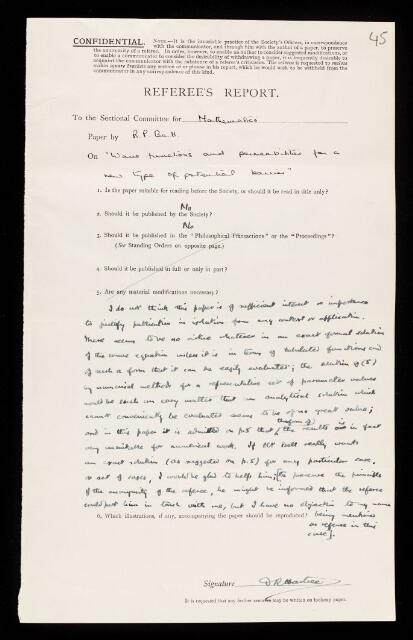 45
CONFIDENTIAL. NOTE.—It is the invariable practice of the Society's Officers, in correspondence
with the communicator, and through him with the author of a paper, to preserve
the anonymity of a referee. In order, however, to enable an author to consider suggested modifications, or
to enable a communicator to consider the desirability of withdrawing a paper, it is frequently desirable to
acquaint the communicator with the substance of a referee's criticisms. The referee is requested to
any section of or phrase in his report, which he would wish to be withheld from the
communicator in any correspondence of this kind.
REFEREE'S REPORT.
To the Sectional Committee for Mathematics
Paper by R. P. Bell
On "Wave functions and permeabilities for a
new type of potential barrier"
1. Is the paper suitable for reading before the Society, or should it be read in title only?
No
2. Should it be published by the Society?
No
3. Should it be published in the "Philosophical Transactions" or the "Proceedings"?
(See Standing Orders on opposite page.)
4. Should it be published in full or only in part?
5. Are any material modifications necessary?
I do not think this paper is of sufficient interest or importance
to justify publication in isolation from any context or application.
There seems to be no virtue whatever in an exact formal solution
of the wave equation unless it is in terms of tabulated functions and
of such a form that it can be easily evaluated; the solution of (5)
by numerical methods for a representative set of parameter values
would be such an easy matter that an analytical solution which
cannot conveniently be evaluated seems to be of no great value;
and in this paper it is admitted on p.5 that the form of the results is in fact
very unsuitable for numerical work. If Mr Bell really wants
an exact solution (as suggested on p.5) for any particular case,
or set of cases, I would be glad to help him; [to preserve the principle
of the anonymity of the referee, he might be informed that the referee
could put him in touch with me, but I have no objection to my name
6. Which illustrations, if any, accompanying the paper should be reproduced? being mentioned
as referee in this
case].
Signature D R Hartree
It is requested that any further remarks may be written on foolscap paper.